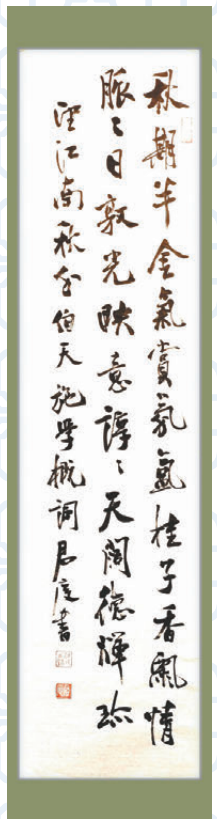 秋期半金氣賞氛氳桂子香飄情
脈〻日敦光映意諄〻天闊德輝珎
望江南秋分伯天施學概詞君度書